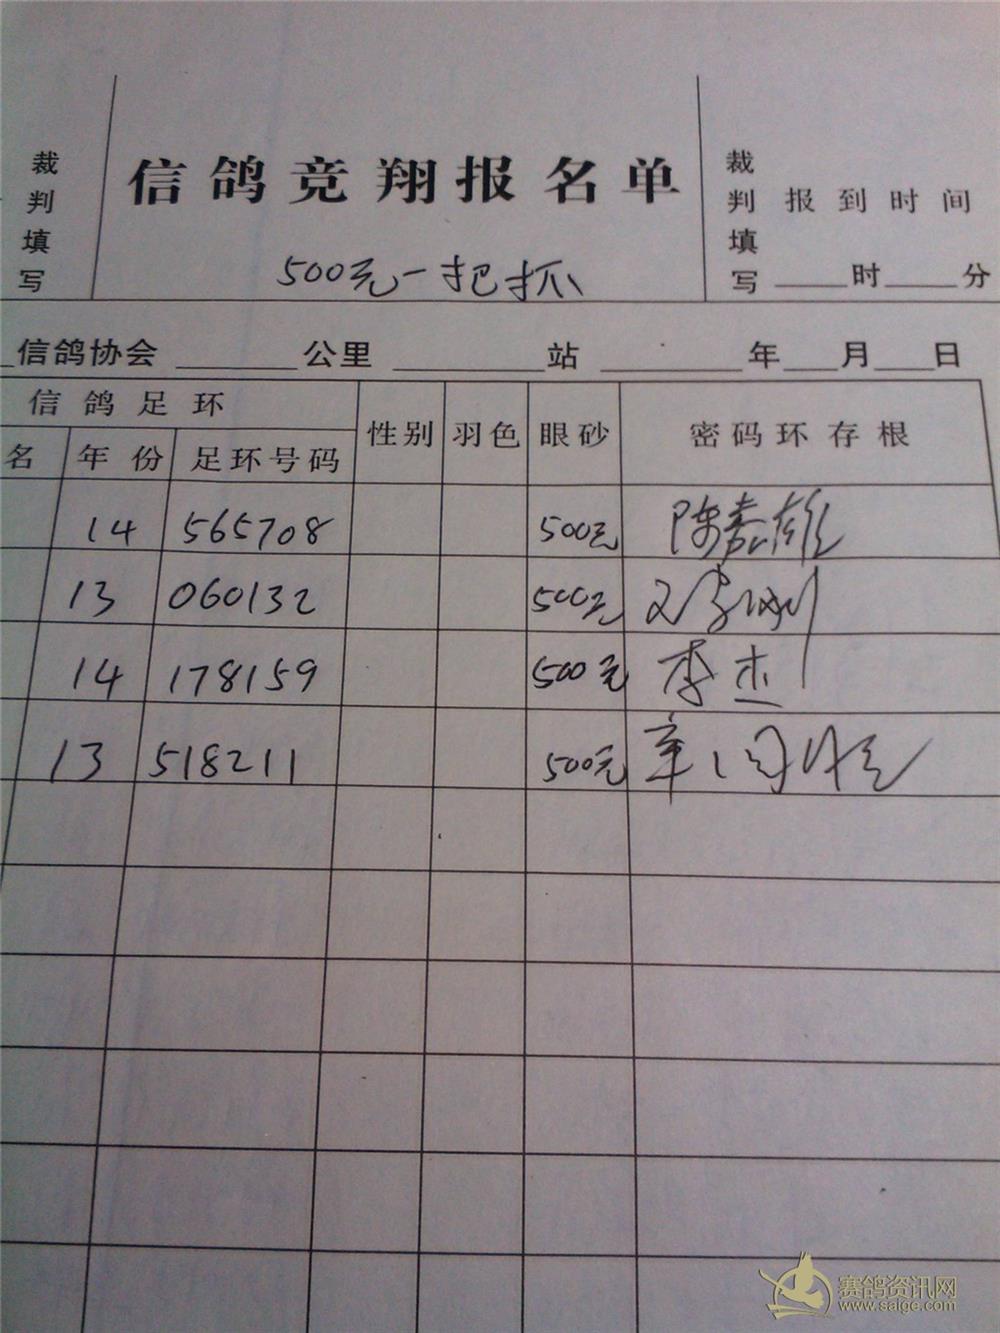 裁判填写
信鸽竞翔报名单
500元一把抓
裁判填写
报到时间
时 分
信鸽协会 公里 站 年 月 日
信鸽足环 性别 羽色 眼砂 密码环存根
名 年份 足环号码
14 565708 500元 陈嘉雄
13 060132 500元
14 178159 500元 李杰
13 518211 500元
赛鸽资讯网
www.saige.com